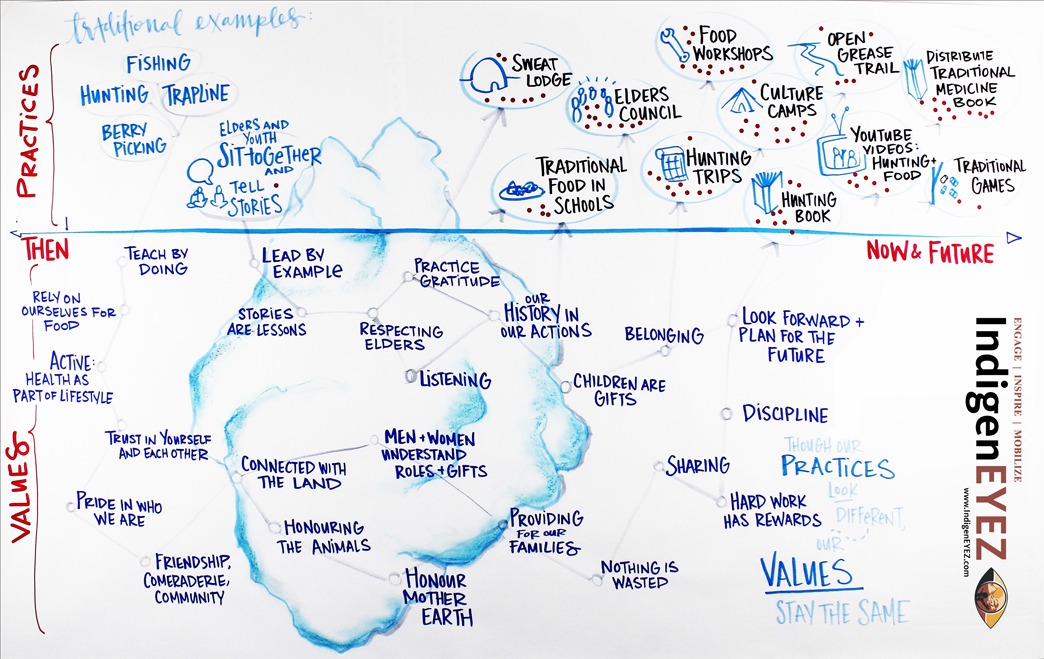 traditional examples:
PRACTICES
FISHING
HUNTING TRAPLINE
BERRY
PICKING
ELDERS AND
YOUTH
SIT TOGETHER
AND
TELL
STORIES
SWEAT
LODGE
ELDERS
COUNCIL
FOOD
WORKSHOPS
OPEN
GREASE
TRAIL
DISTRIBUTE
TRADITIONAL
MEDICINE
BOOK
CULTURE
CAMPS
TRADITIONAL
FOOD IN
SCHOOLS
HUNTING
TRIPS
HUNTING
BOOK
YOUTUBE
VIDEOS:
HUNTING+
FOOD
TRADITIONAL
GAMES
THEN
NOW & FUTURE
VALUES
TEACH BY
DOING
RELY ON
OURSELVES FOR
FOOD
ACTIVE:
HEALTH AS
PART OF LIFESTYLE
TRUST IN YOURSELF
AND EACH OTHER
PRIDE IN WHO
WE ARE
FRIENDSHIP,
COMERADERIE,
COMMUNITY
LEAD BY
EXAMPLE
STORIES
ARE LESSONS
PRACTICE
GRATITUDE
RESPECTING
ELDERS
OUR
HISTORY IN
OUR ACTIONS
LISTENING
CONNECTED WITH
THE LAND
MEN + WOMEN
UNDERSTAND
ROLES + GIFTS
HONOURING
THE ANIMALS
HONOUR
MOTHER
EARTH
PROVIDING
FOR OUR
FAMILIES
BELONGING
CHILDREN ARE
GIFTS
SHARING
NOTHING IS
WASTED
LOOK FORWARD +
PLAN FOR THE
FUTURE
DISCIPLINE
HARD WORK
HAS REWARDS
THOUGH OUR
PRACTICES
LOOK
DIFFERENT,
OUR
VALUES
STAY THE SAME
ENGAGE | INSPIRE | MOBILIZE
IndigenEYEZ
www.IndigenEYEZ.com